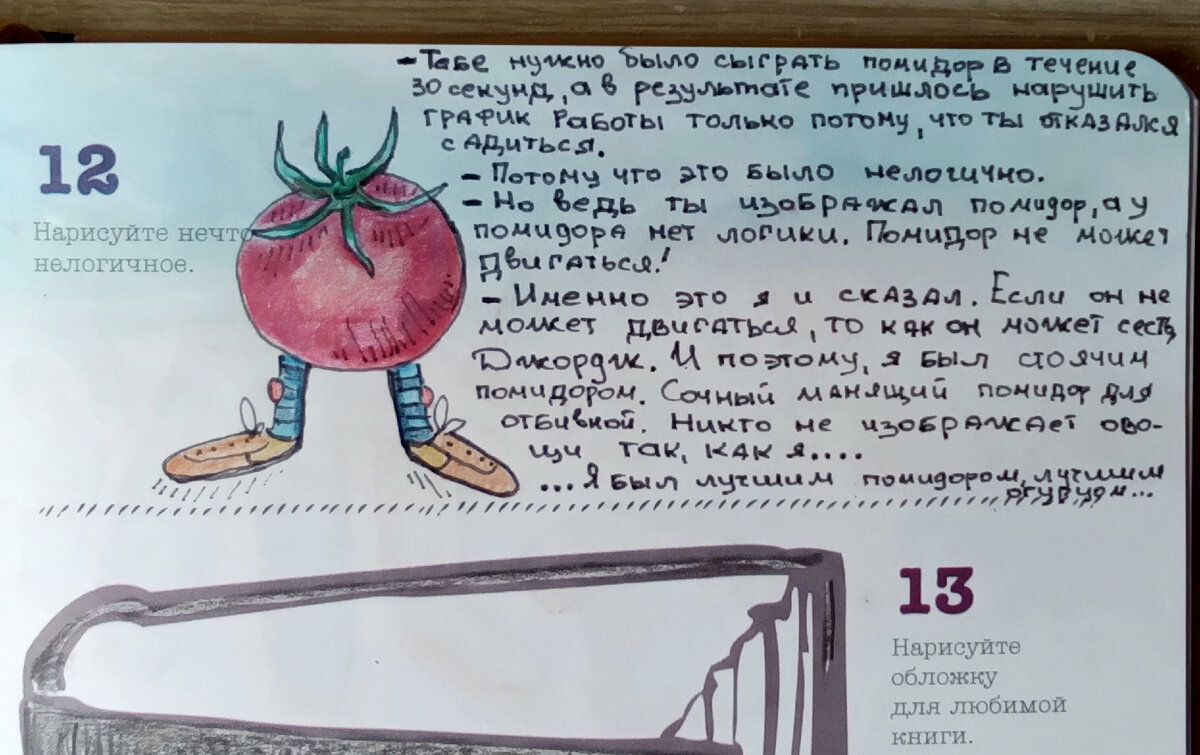 12
Нарисуйте нечто
нелогичное.
- Тебе нужно было сыграть помидор в течение
30 секунд, а в результате пришлось нарушить
график работы только потому, что ты отказался
садиться.
- Потому что это было нелогично.
- Но ведь ты изображал помидор, а у
помидора нет логики. Помидор не может
двигаться!
- Именно это я и сказал. Если он не
может двигаться, то как он может сесть,
Джордж. И поэтому, я был стоячим
помидором. Сочный манящий помидор для
отбивной. Никто не изображает ово-
щи так, как я....
...Я был лучшим помидором, лучшим
огурцом...
13
Нарисуйте
обложку
для любимой
книги.